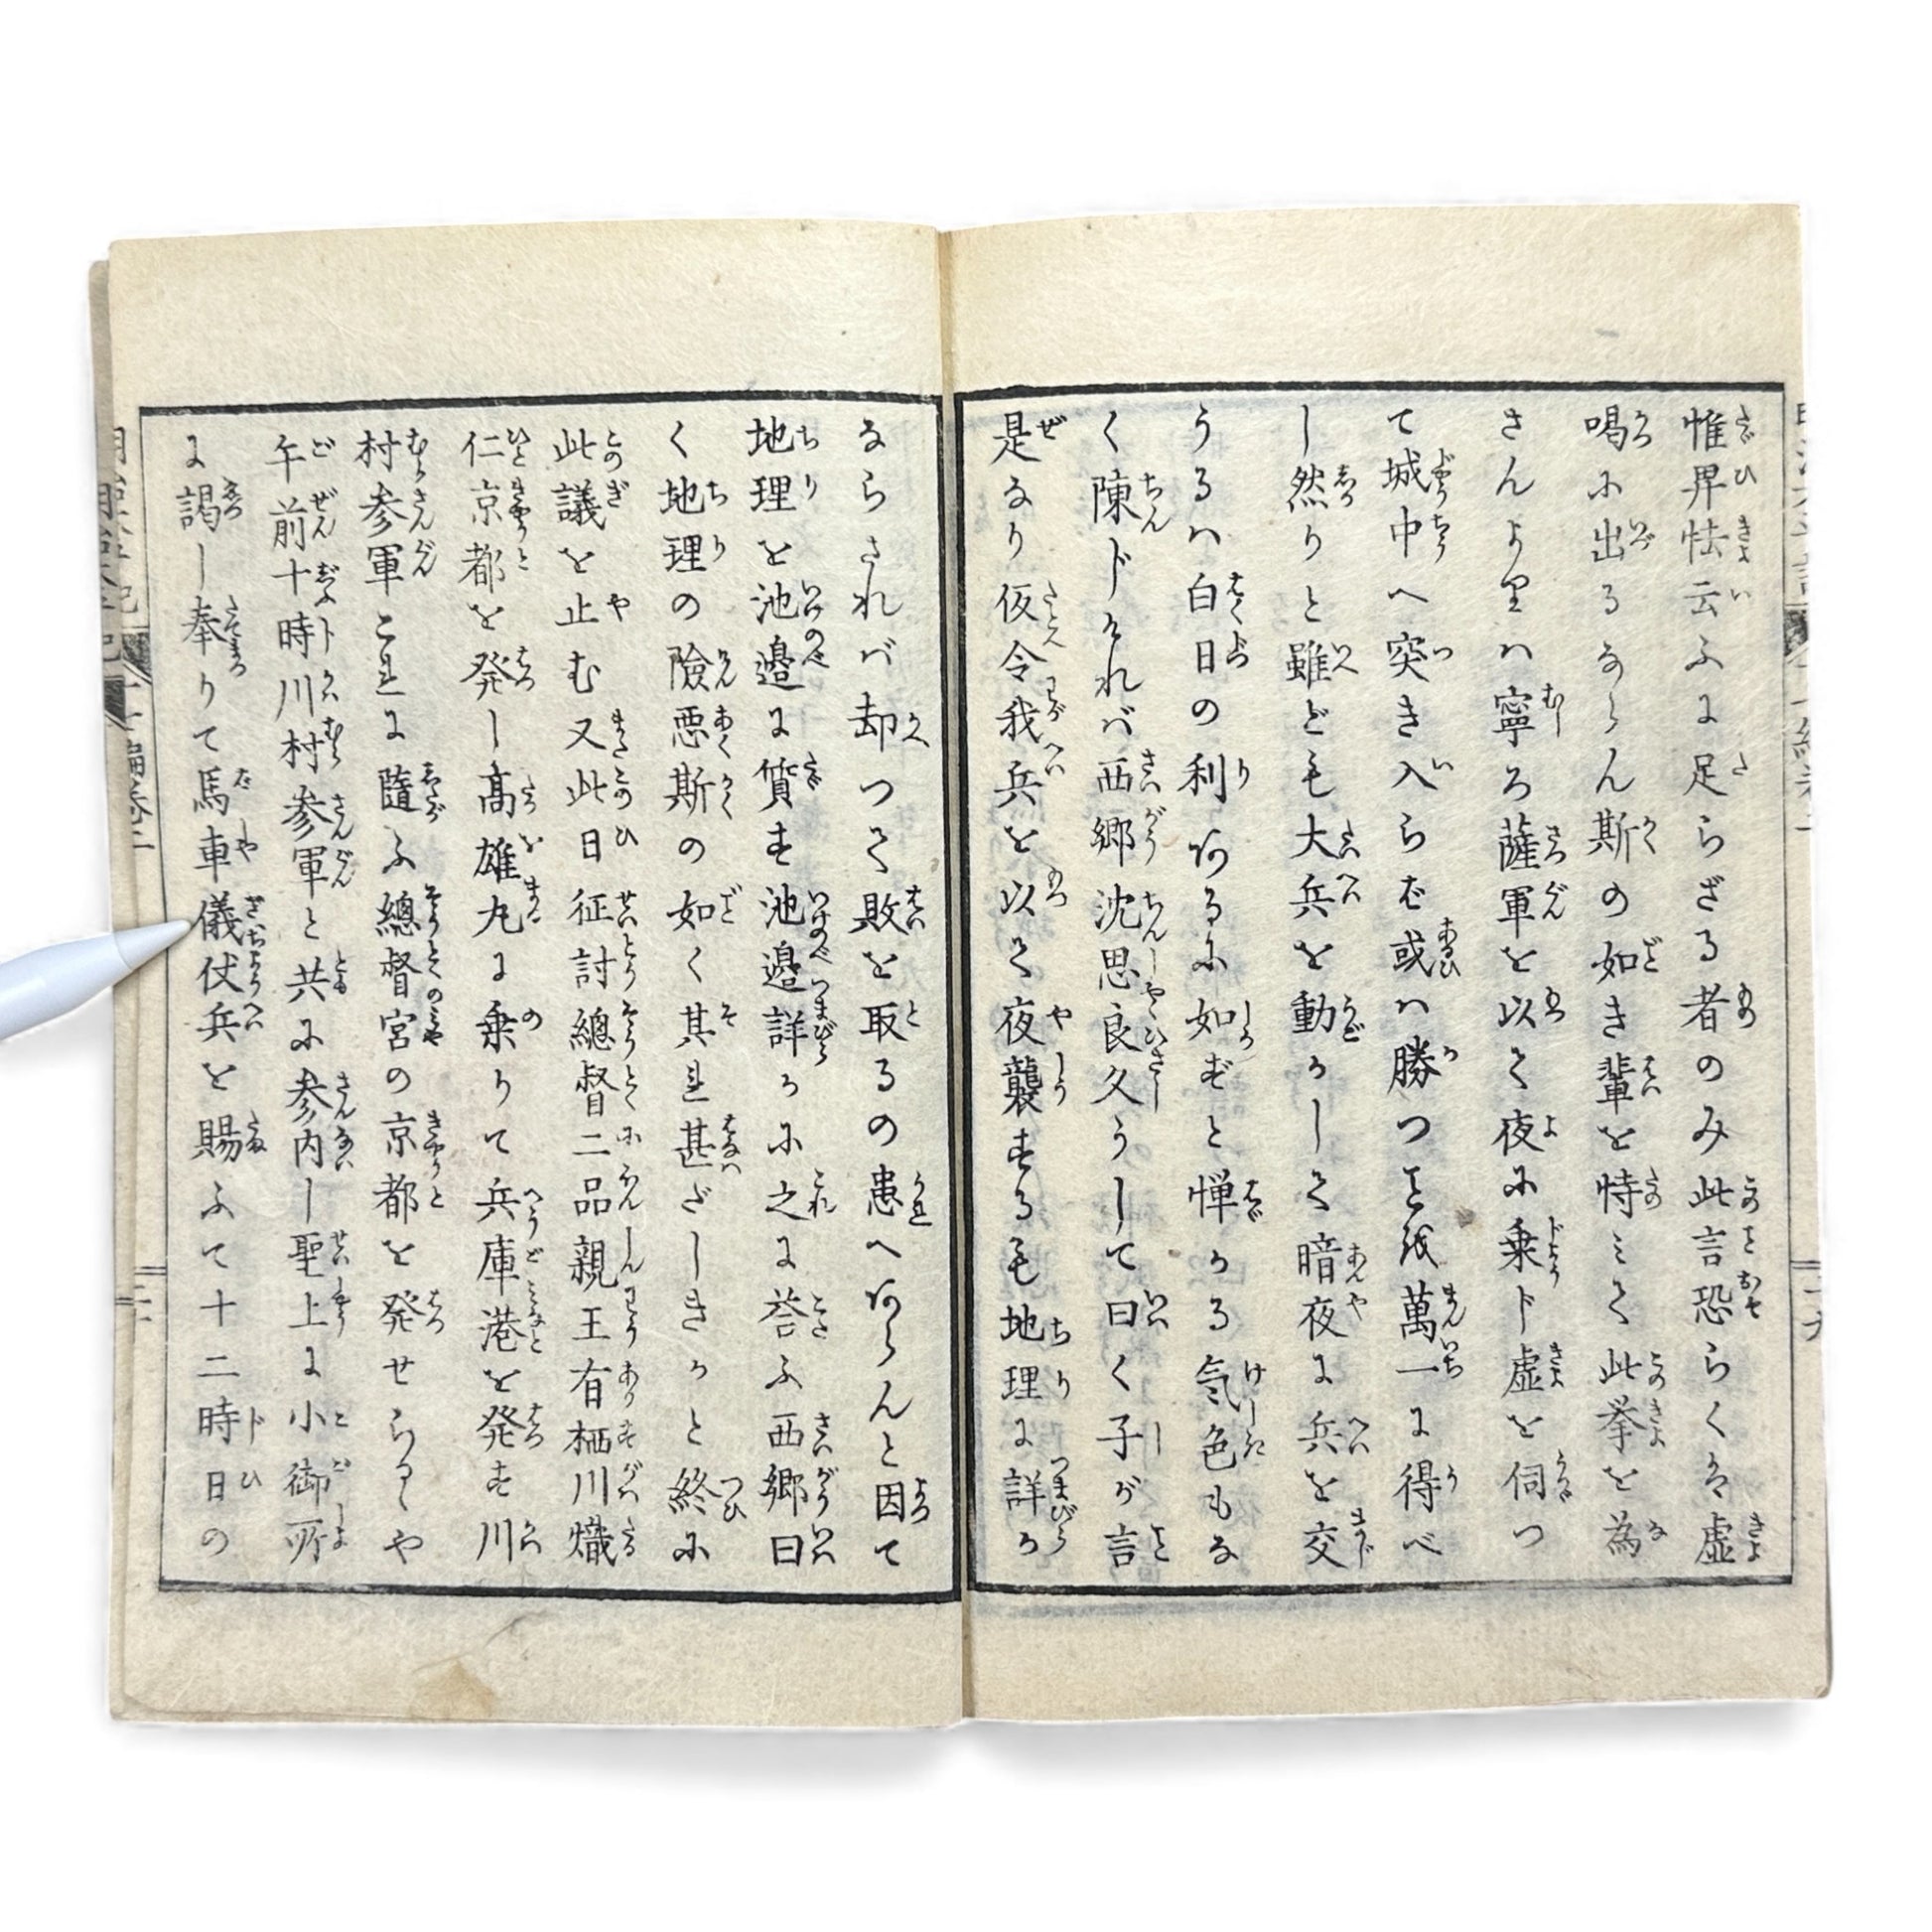 惟畀怯云ふに足らざる者のみ此言恐らくは虚
喝に出るならん斯の如き輩を恃みて此挙を為
さんよりハ寧ろ薩軍を以て夜に乗ド虚を伺つ
て城中へ突き入らば或ハ勝つこと我萬一に得べ
し然りと雖ども大兵を動かして暗夜に兵を交
うるハ白日の利あるに如ずと憚かる気色もな
く陳ドければ西郷沈思良久うして曰く子が言
是なり仮令我兵を以て夜襲するも地理に詳か
ならされバ却つて敗を取るの患へあらんと因て
地理を池邉に質す池邉詳かに之に答ふ西郷曰
く地理の險悪斯の如く其れ甚だしきかと終に
此議を止む又此日征討總督二品親王有栖川熾
仁京都を発し高雄丸に乗りて兵庫港を発す川
村参軍これに随ふ總督宮の京都を発せらるゝや
午前十時川村参軍と共に参内し聖上に小御所
に謁し奉りて馬車儀仗兵を賜ふて十二時日の